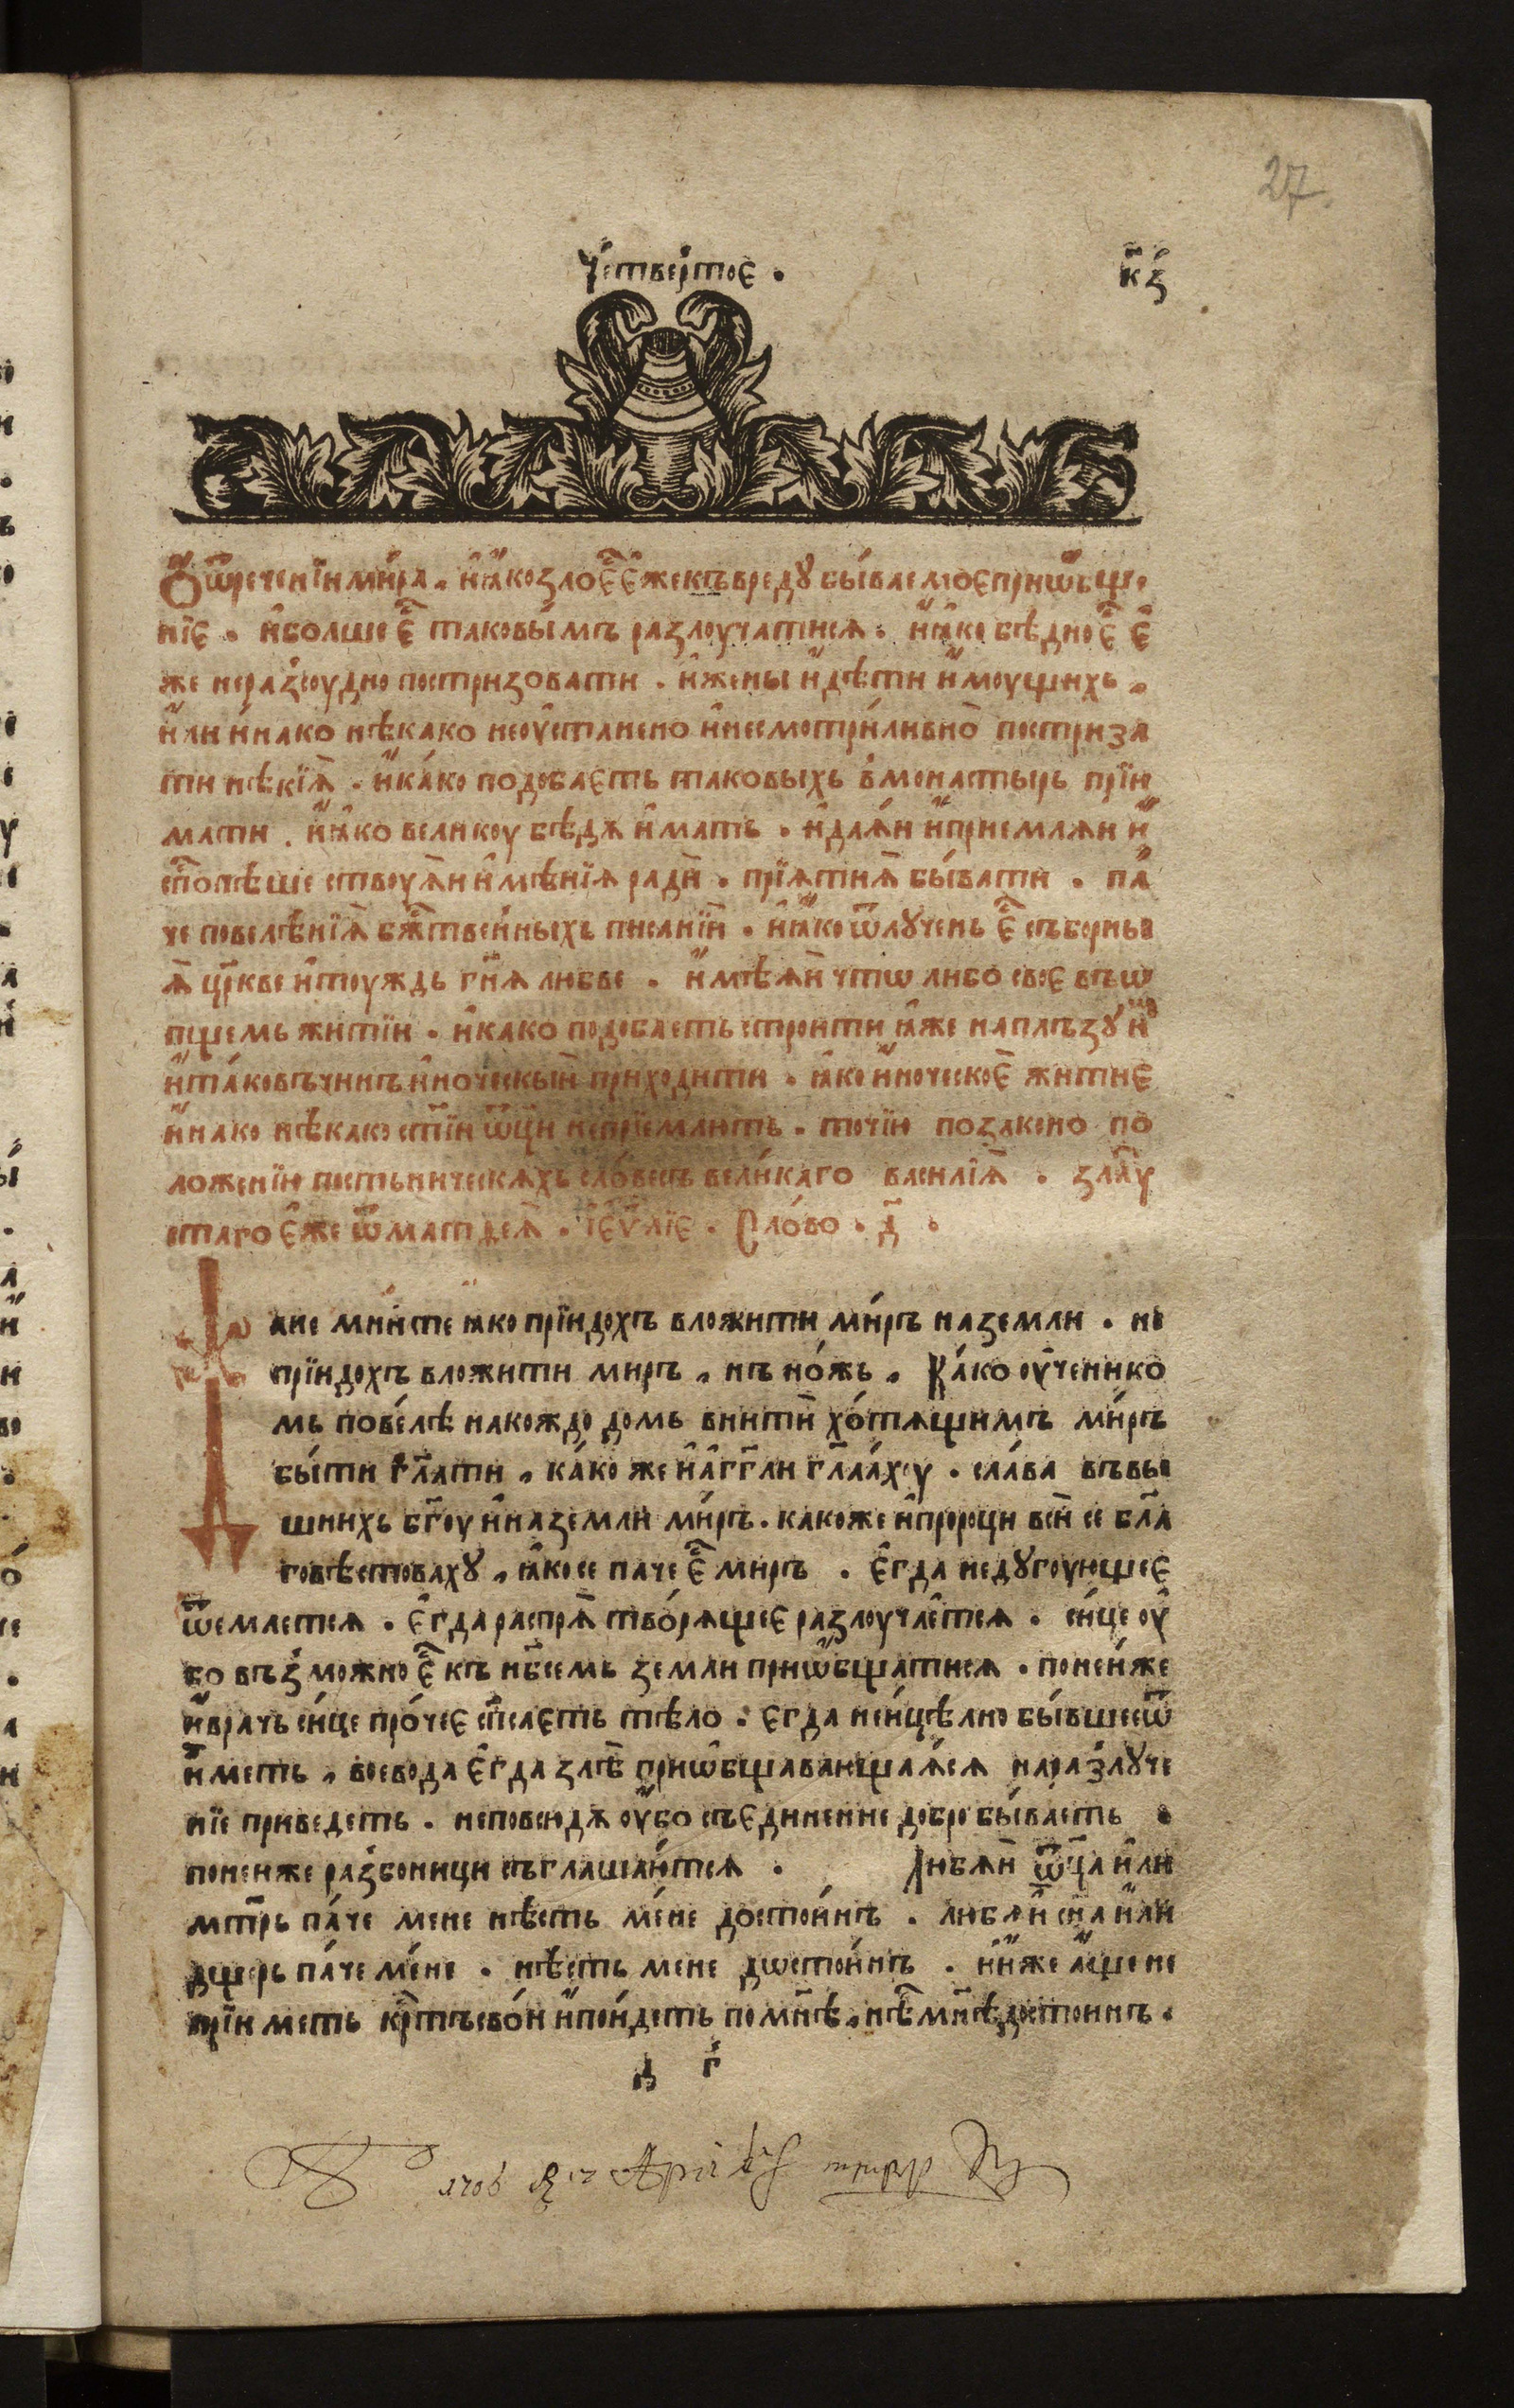 27
Че́тве́ртоє . к҃з
Ѡ ѿреченїи ми́ра . и҆ ꙗ҆́ко зло є҆с҇ є҆́же къ вреду бы́ваемоє приѡ҆́бще
нїє . и҆ болше є҆с҇ таковы́мъ разлоучатисѧ . и҆ ꙗ҆́ко бѣ́дно є҆с҇ є҆́
же нера́зсоудно постризовати . и҆ жены и҆ дѣ́ти и҆моущихь .
и҆ли и҆́нако нѣкако неоу҆ставлено и҆ несмотри́ливно постриза
ти нѣкїѧ̀ . и҆ ка́ко подобаєть таковыхь в монастырь прїи
мати . и҆ ꙗ҆́ко великоу бѣдѫ и҆мать . и҆ даѧ́и и҆ приемлѧи и҆
сп҇ослѣше ствоуѧ҆и и҆мѣнїѧ ради̇̀ . прїѧтнѧ̀ бы́вати . па́
че повелѣнїѧ̀ бж҇твенныхъ писанїи̇̀ . и҆ ꙗ҆́ко ѿлученъ є҆с҇ съборныѧ
ѧ̀ цр҃кве и҆ тоуждь гн҃ѧ любве . и҆мѣѧ҆и чтѡ либо своє въ ѡ
пщемь житїи . и҆ како подобаєть строити ꙗ҆́же на ползу и҆
и҆ та́ко въ чинъ и҆ноческый̀ приходити . ꙗ҆ко и҆ноческоє̀ житиє
и҆нако нѣкако ст҃їи ѿц҃и не прїемлють . точїю по закono по
ложенїю постьническѫхь слове́съ вели́каго василїѧ̀ . злаⷮу
стаго є҆́же ѿ матѳеѧ̀ . і҆єѵ҃лїє . Сло́во . д҃ .
ане мни́те ꙗко прїидохъ вложити ми́ръ на земли . не
прїидохъ вложити миръ , нъ но́жь , Ка́ко оу҆ченико
мь пове́лѣ на кождо домь внити̇̀ хо́тѧщимъ ми́ръ
бы́ти гл҃ати , ка́ко же и҆ а҆гг҃ли гл҃ла́хоу . сла́ва въ вы
шнихь бг҃оу и҆ на земли̇̀ ми́ръ . како же и҆ пророци всй се бл҃а
говѣствоваху , ꙗ҆ко се паче є҆с҇ миръ . Є҆гда недугоующеє
ѿемлетсѧ . є҆гда распрѧ̀ тво́рѧщеє разлоучае҆тсѧ . си́це оу҆
бо възможно є҆с҇ къ нб҃семь земли приѡ҆́бщатисѧ . поне́же
и҆ врачь си́це про́чеє сп҃саєть тѣло . єгда неи́цѣлно бы́вшее ѿ
и҆меть , воевода є҆гда злѣ̀ приѡ҆бщавающаѧ́сѧ на ра́злуче
нїе приведеть . не повсюдѫ оу҆́бо съєдинение добро бы́ваєть .
понеже разбоници съглашаютсѧ . Любѧ́и ѿц҃а и҆ли
мт҃рь па́че мене нѣсть ме́не достои́нъ . любѧ́и сн҃а и҆ли
дщерь па́че ме́не . нѣсть мене дѡстои́нъ . и҆ и҆́же а҆́ще не
прїиметь кр҇тъ сво́и и҆ по́идеть по мн҃ѣ . нѣс҇ мн҃ѣ достоинъ .
д г҃